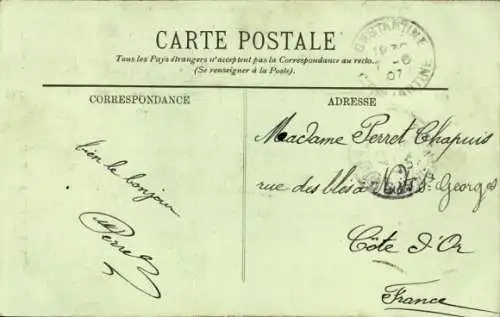 CARTE POSTALE
Tous les Pays étrangers n'acceptent pas la Correspondance au recto.
(Se renseigner à la Poste).
CONSTANTINE
CONSTANTINE
CORRESPONDANCE
ADRESSE
bien le bonjour
Perret
Madame Perret Chapuis
rue des blés à Nuits St Georges
Côte d'Or
France